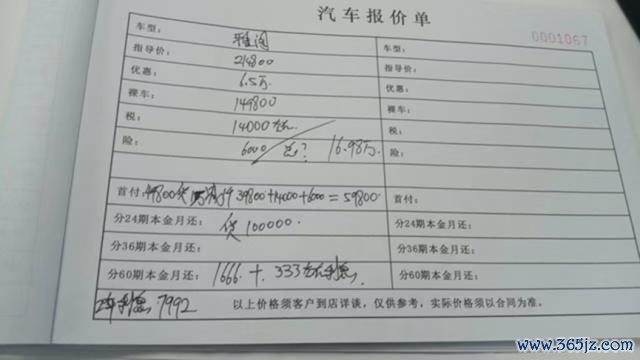 汽车报价单
0001067
车型： 雅阁 车型：
指导价： 214800 指导价：
优惠： 6.5万 优惠：
裸车： 149800 裸车：
税： 14000左右 税：
险： 6000 总? 16.98万 险：
首付：49800 39800+14000+6000=59800 首付：
分24期本金月还： 贷100000. 分24期本金月还：
分36期本金月还： 分36期本金月还：
分60期本金月还： 1666.+.333左右利息. 分60期本金月还：
2年利息 7992 以上价格须客户到店详谈，仅供参考，实际价格须以合同为准。
www.365jz.com